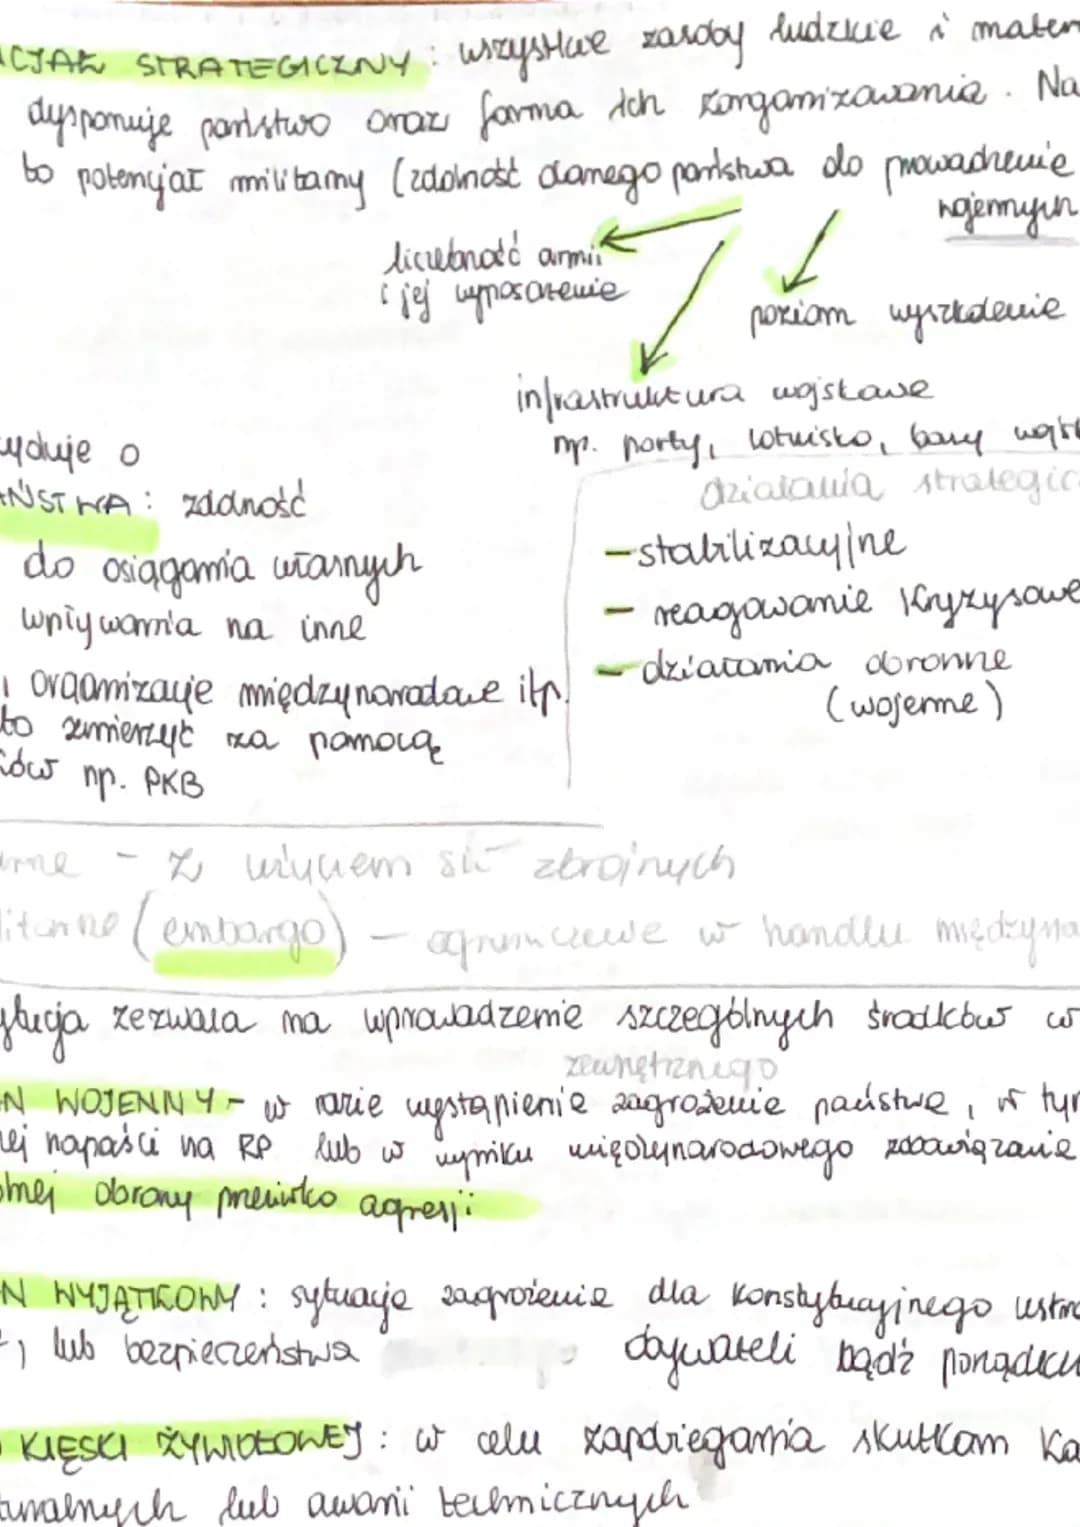 CJAŁ STRATEGICZNY : wszystkie zasoby ludzkie i mater
dysponuje państwo oraz forma ich zorganizowania. Na
to potencjał militarny (zdolność danego państwa do prowadzenie
wojennych
liczebność armii
i jej wyposażenie
poziom wyszkolenie
infrastruktura wojskowe
np. porty, lotnisko, bazy wojsk
yduje o
AŃSTWA : zdolność
do osiągania własnych
wpływania na inne
i organizacje międzynarodowe itp.
to zmierzyć za pomocą
ków np. PKB
działania strategic
- stabilizacyjne
- reagowanie kryzysowe
- działania obronne
(wojenne)
arne - z użyciem sił zbrojnych
litarne (embargo) - ograniczenie w handlu międzyna
ytucja zezwala na wprowadzenie szczególnych środków w
zewnętrznego
N WOJENNY - w razie wystąpienie zagrożenie państwa, w tym
ej napaści na RP lub w wyniku międzynarodowego zobowiązanie
lnej obrony przeciwko agresji
N WYJĄTKOWY : sytuacje zagrożenie dla konstytucyjnego ustro
, lub bezpieczeństwa obywateli bądź porządku
KLĘSKI ŻYWIOŁOWEJ : w celu zapobiegania skutkom ka
turalnych lub awarii technicznych